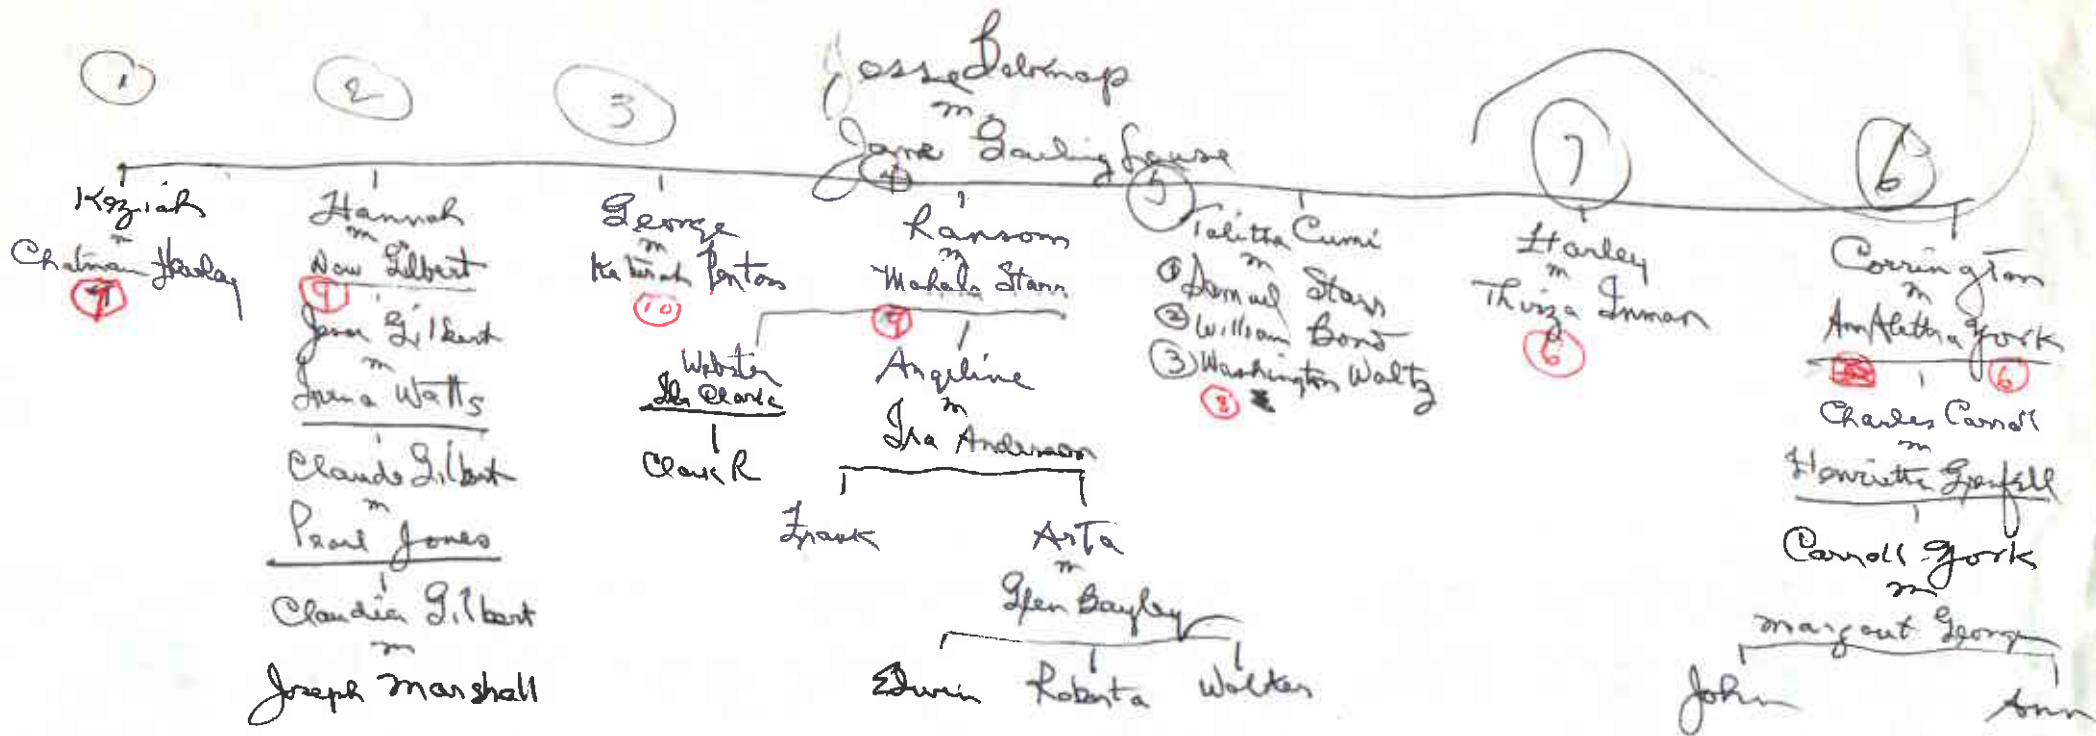 1
2
3
Jesse Belknap
m
Jane Garlinghouse
4
5
7
6
Keziah
m
Chatman Hawley
7
Hannah
m
Daw Gilbert
9
Jesse Gilbert
m
Irena Watts
Claude Gilbert
m
Pearl Jones
Claudia Gilbert
m
Joseph Marshall
George
m
Keturah Penton
10
Ransom
m
Mahala Starr
9
Webster
Ida Clark
Clark R
Angeline
m
Ira Anderson
Frank
Arta
m
Glen Bayley
Edwin
Roberta
Walter
Talitha Cumi
m
1 Samuel Starr
2 William Bond
3 Washington Waltz
8
Harley
m
Thirza Inman
6
Corrington
m
Ann Aletha York
6
Charles Carroll
m
Henrietta Grenfell
Carroll York
m
Margaret George
John
Ann